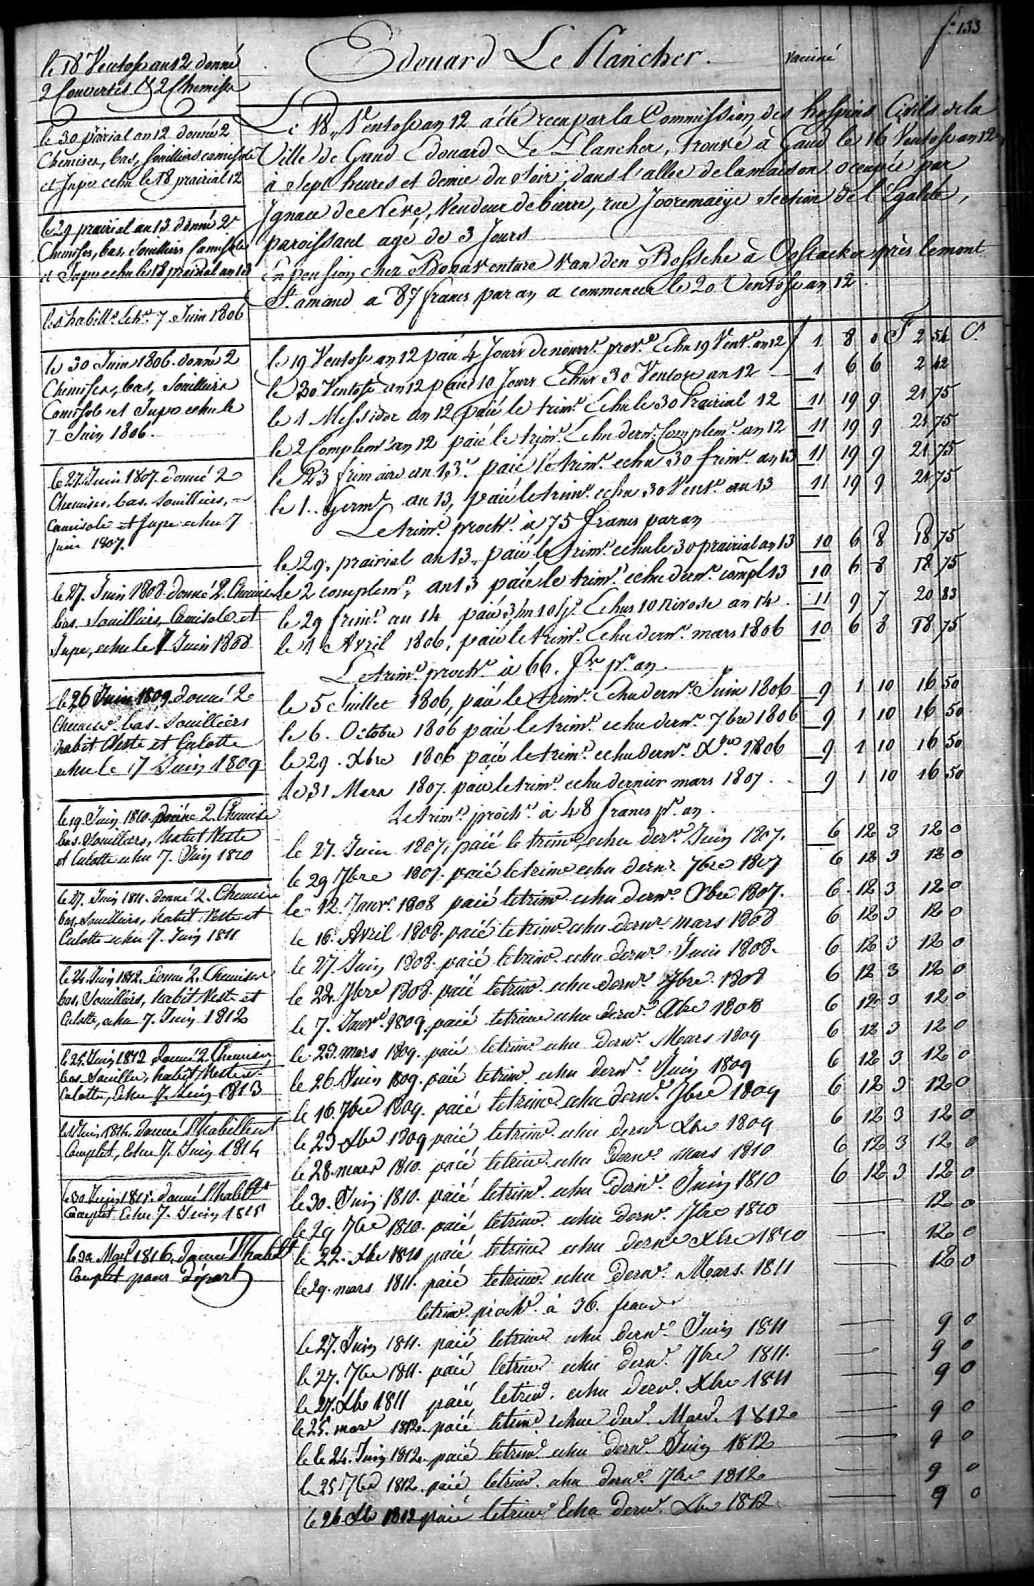 f. 133
Edouard Le Plancher.
vacciné
le 18 Ventose an 12 donné
2 Couvertes & 2 Chemises
le 30 prairial an 12 donné 2
Chemises, bas, souilliers camisole
et Jupe echu le 18 prairial 12
le 29 prairial an 13 donné 2
Chemises, bas, souilliers Camisole
et Jupe echu le 18 prairial an 13
7 Juin 1806
le 30 Juin 1806 donné 2
Chemises, bas, souilliers
Camisole et Jupe echu le
7 Juin 1806.
le 27 Juin 1807 donné 2
Chemises, bas, souilliers,
camisole et Jupe echu 7
Juin 1807.
le 27. Juin 1808 donné 2 Chemises
bas, souilliers, Camisole et
Jupe, echu le 7 Juin 1808
le 26 Juin 1809 donné 2
Chemises bas, souilliers
habit Veste et Culotte
echu le 7 Juin 1809
le 19 Juin 1810 donné 2 Chemises
bas, souilliers, habit Veste
et Culotte echu 7. Juin 1810
le 27. Juin 1811 donné 2. Chemises
bas, souilliers, habit Veste et
Culotte echu 7. Juin 1811
le 24. Juin 1812. donné 2. Chemises
bas, souilliers, habit Veste et
Culotte, echu 7. Juin 1812
donné 2. Chemises
bas, souillier, habit Veste et
Culotte, Echu 7. Juin 1813
Juin 1814. donné l'habillem.t
Complet, Echu 7. Juin 1814
le 30 Juin 1815. donné l'habill.t
Complet Echu 7. Juin 1815
Mars 1816. donné l'habill.t
Complet pour départ
Le 18 Ventose an 12 a été recu par la Commission des hospices Civils de la
Ville de Gand Edouard Le Plancher, trouvé à Gand le 16 Ventose an 12
à sept heures et demie du soir; dans l'allée de la maison occupée par
Ignace de Neve, vendeur de beurre, rue Jooremaeije section de l'Egalité,
paroissant agé de 3 Jours
En pension chez Bonaventure van den Bossche à Oostacker près le mont
St. amand a 87 francs par an a commencer le 20 Ventose an 12.
le 19 Ventose an 12 paié 4 Jours de nourr.e prov.e Echu 19 Vent. an 12 £ 1 8 0 F 2 54 C.
le 30 Ventose an 12 paié 10 Jours Echus 30 Ventose an 12 1 6 6 2 42
le 1 Messidor an 12 paié le trim.e Echu le 30 Prairial 12 11 19 9 21 75
le 2 Complem. an 12 paié le trim.e Echu dern. Complem.e an 12 11 19 9 21 75
le 23 frimaire an 13 paié le trim.e echu 30 frim.e an 13 11 19 9 21 75
le 1. Germ.l an 13, paié le trim.e echu 30 Vent.e an 13 11 19 9 21 75
Le trim.e proch.n à 75 francs par an
le 29. prairial an 13. paié le trim.e echu le 30 prairial an 13 10 6 8 18 75
le 2 complem.e an 13 paié le trim.e echu dern.e compl. 13 10 6 8 18 75
le 29 frim.e an 14 paié 3 m 10 J.rs Echus 10 nivose an 14. 11 9 7 20 83
le 1 Avril 1806, paié le trim.e Echu dern.e mars 1806 10 6 8 18 75
Le trim.e proch.n à 66. fr. pr. an.
le 5 Juillet 1806, paié le trim.e Echu dern.e Juin 1806 9 1 10 16 50
le 6. Octobre 1806 paié le trim.e echu dern.e 7bre 1806 9 1 10 16 50
le 29. Xbre 1806 paié le trim.e echu dern.e Xbre 1806 9 1 10 16 50
le 31 Mars 1807. paié le trim.e echu dernier mars 1807. 9 1 10 16 50
Le trim.e proch.n à 48 francs pr. an.
le 27. Juin 1807, paié le trim.e echu der.er Juin 1807. 6 12 3 12 0
le 29 7bre 1807. paié le trime echu dern.r 7bre 1807 6 12 3 12 0
le 12. Janv.r 1808 paié le trim.e echu dern.e Xbre 1807. 6 12 3 12 0
le 16. Avril 1808. paié le trim.e echu dern.e mars 1808 6 12 3 12 0
le 27. Juin 1808. paié le trim.e echu dern.e Juin 1808. 6 12 3 12 0
le 22. 7bre 1808. paié le trim.e echu dern.e 7bre. 1808 6 12 3 12 0
le 7. Janv.r 1809. paié le trime echu dern.e Xbre 1808 6 12 3 12 0
le 23. mars 1809. paié le trime echu dern.e Mars 1809 6 12 3 12 0
le 26 Juin 1809. paié le trim. echu dern.e Juin 1809 6 12 3 12 0
le 16. 7bre 1809. paié le trime echu dern.e 7bre 1809 6 12 3 12 0
le 23 Xbre 1809 paié le trime echu dern.e Xbre 1809 6 12 3 12 0
le 28. mars 1810. paié le trime echu Dern.e mars 1810 6 12 3 12 0
le 30. Juin 1810. paié le trim.e echu dern.e Juin 1810 6 12 3 12 0
le 29 7bre 1810. paié le trim. echu dern.e 7bre 1810 12 0
le 22. Xbre 1810 paié le trim.e echu dern.e Xbre 1810 12 0
le 29. mars 1811. paié le trim.e echu Dern.e Mars. 1811 12 0
le trim.e proch.n à 36. francs
le 27. Juin 1811. paié le trim.e echu dern.e Juin 1811 9 0
le 27. 7bre 1811. paié le trim.e echu dern.e 7bre 1811. 9 0
le 27. Xbre 1811 paié le trim.e echu dern.e Xbre 1811 9 0
le 25. mars 1812. paié le trim.e echu der.e Mars. 1812 9 0
le le 24. Juin 1812. paié le trim.e echu dern.e Juin 1812 9 0
le 25 7bre 1812. paié le trim. echu dern.e 7bre 1812 9 0
le 26 Xbre 1812 paié le trim.e Echu dern.e Xbre 1812 9 0